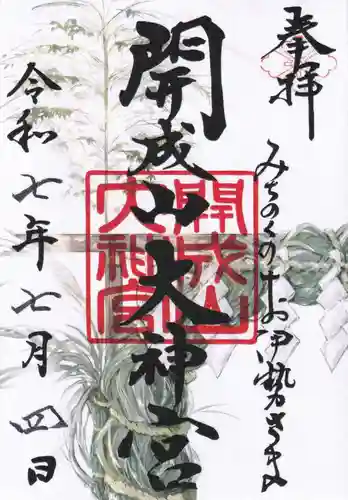 奉拝
みちのくのお伊勢さま
開成山大神宮
開成山
大神宮
令和七年七月四日